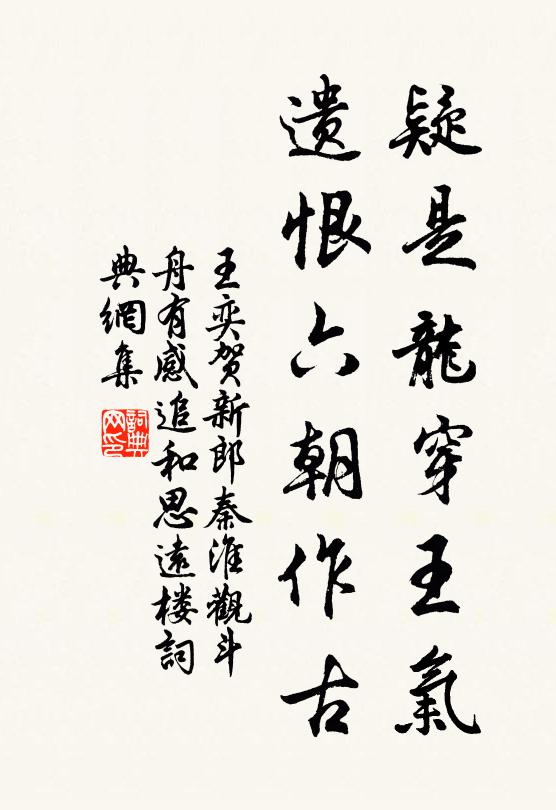 疑是龍穿王氣
遺恨六朝作古
王奕賀新郎秦淮觀斗
舟有感追和思遠楼詞
典網集
詞典網印